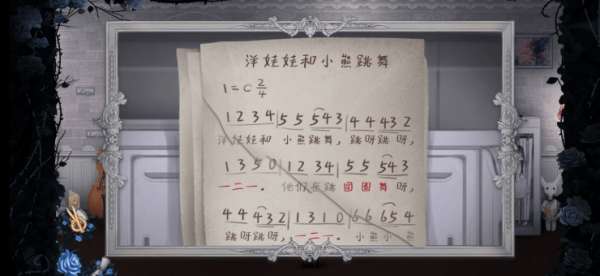 洋娃娃和小熊跳舞
1=C 2/4
1 2 3 4 | 5 5 5 4 3 | 4 4 4 3 2
洋娃娃和 小熊跳舞，跳呀跳呀，
1 3 5 0 | 1 2 3 4 | 5 5 5 4 3
一二一。他们在跳 圆圈舞 呀，
4 4 4 3 2 | 1 3 1 0 | 6 6 6 5 4
跳呀跳呀，一二一。小熊小